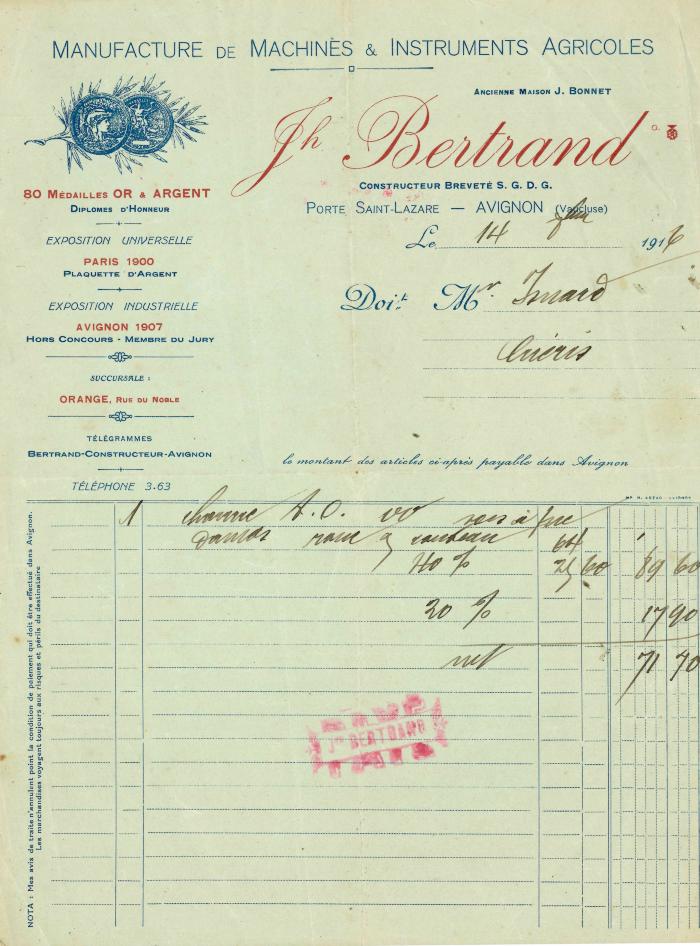 MANUFACTURE DE MACHINES & INSTRUMENTS AGRICOLES
ANCIENNE MAISON J. BONNET
Jh Bertrand
CONSTRUCTEUR BREVETÉ S. G. D. G.
PORTE SAINT-LAZARE — AVIGNON (Vaucluse)
Le 14 1916
80 MÉDAILLES OR & ARGENT
DIPLOMES D'HONNEUR
EXPOSITION UNIVERSELLE
PARIS 1900
PLAQUETTE D'ARGENT
EXPOSITION INDUSTRIELLE
AVIGNON 1907
HORS CONCOURS - MEMBRE DU JURY
SUCCURSALE :
ORANGE, RUE DU NOBLE
TÉLÉGRAMMES
BERTRAND-CONSTRUCTEUR-AVIGNON
TÉLÉPHONE 3.63
Doit Mr
le montant des articles ci-après payable dans Avignon
1 A. O.
64
40 % 25 60 89 60
20 % 17 90
net 71 70
Jh BERTRAND
NOTA : Mes avis de traite n'annulent point la condition de paiement qui doit être effectué dans Avignon.
Les marchandises voyagent toujours aux risques et périls du destinataire